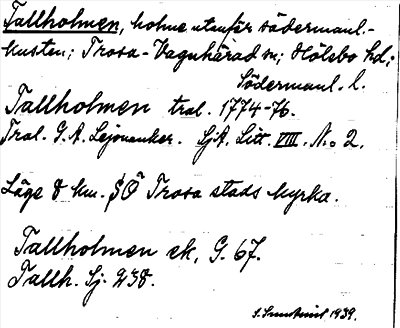 Tallholmen, holme utanför södermanl.-
kusten; Trosa-Vagnhärad sn; Hölebo hd;
Södermanl. l.
Tallholmen tral. 1774-76.
Tral. G. A. Lejonanker. SjA. Litt. VIII. No 2.
Läge 8 km. SÖ Trosa stads kyrka.
Tallholmen ek, G. 67.
Tallh. Sj. 238.
1939.